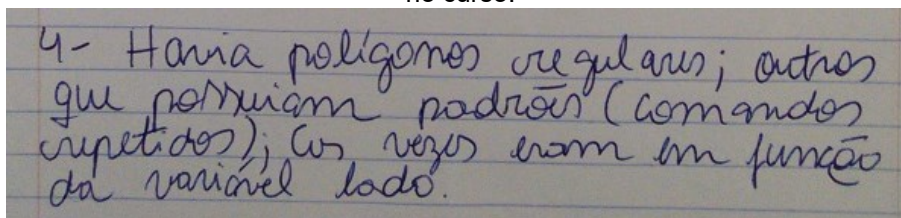 no curso.
4- Havia polígonos regulares; outros
que possuiam padrões (comandos
repetidos); as vezes eram em função
da variável lado.